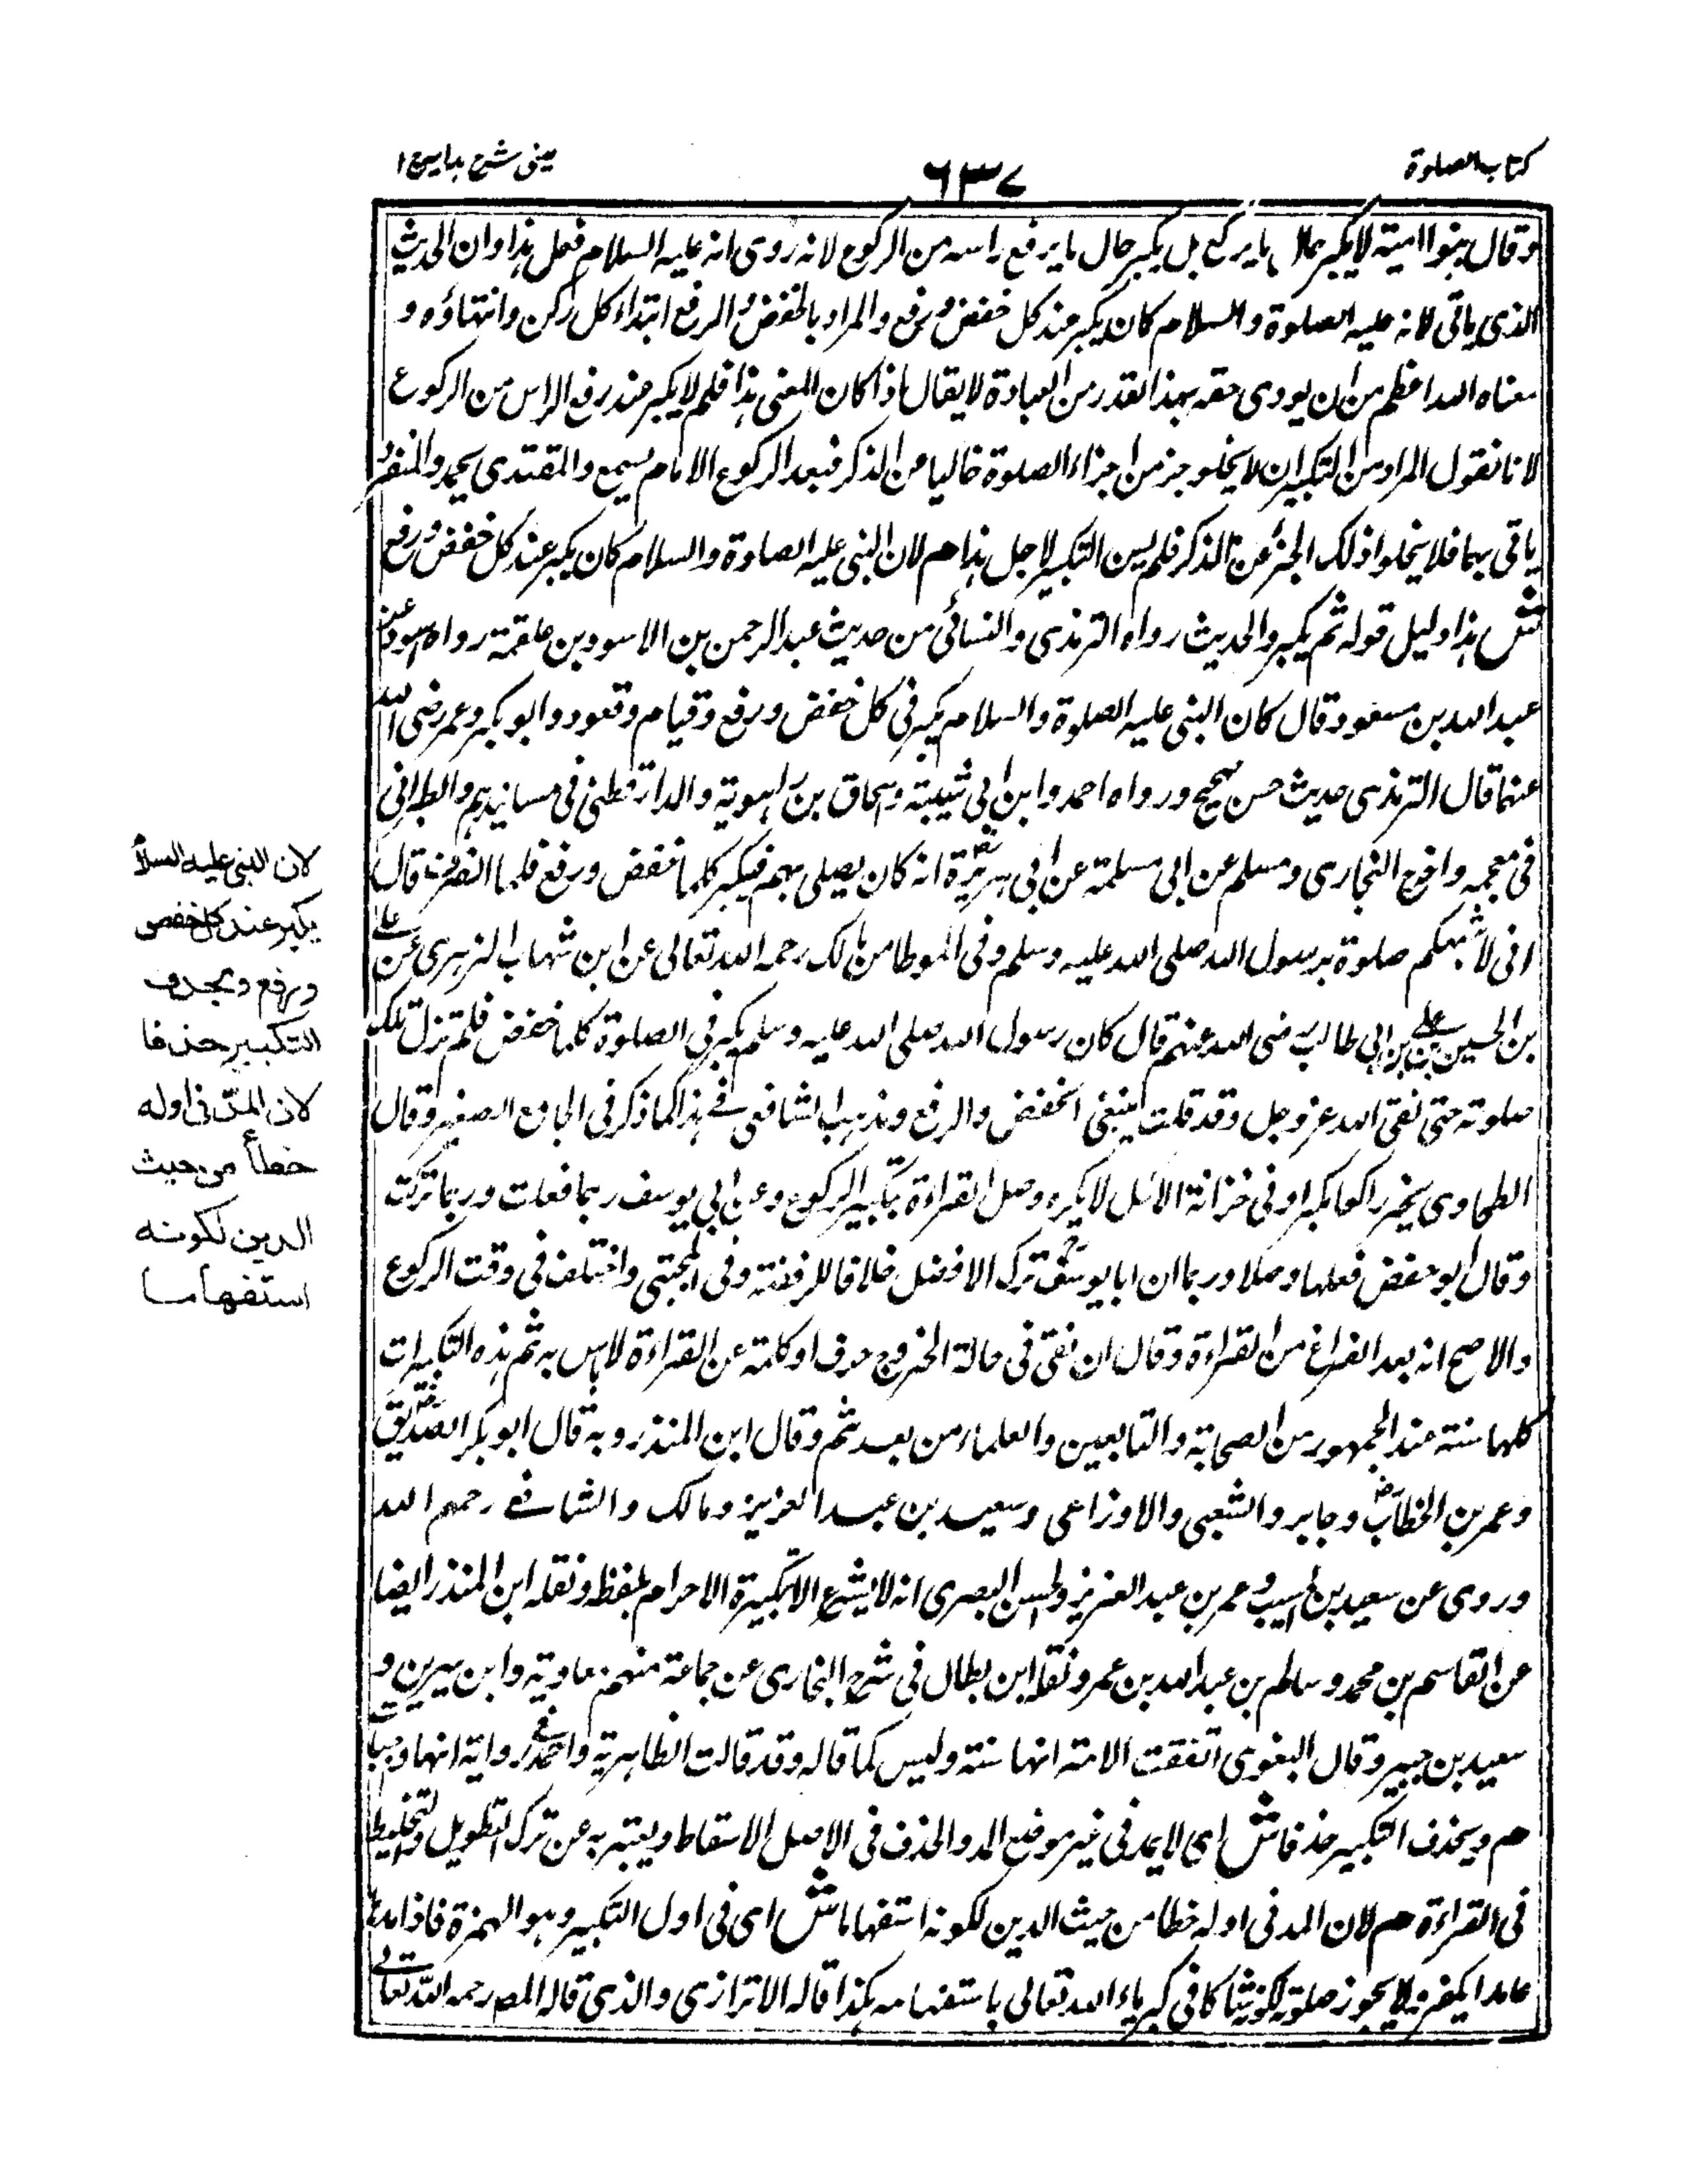 كتاب الصلوة
٦٣٧
عينى شرح هدايه ج ١
وقال بنوا امية لا يكبر حال ما يركع بل يكبر حال ما يرفع راسه من الركوع لانه روى انه عليه السلام فعل هذا وان الحديث
الذى ياتى لانه عليه الصلوة والسلام كان يكبر عند كل خفض ورفع والمراد بالخفض والرفع ابتداء كل ركن وانتهاؤه و
معناه الله اعظم من ان يودى حقه بهذا القدر من العبادة لا يقال اذا كان المعنى هذا فلم لا يكبر عند رفع الراس من الركوع
لانا نقول المراد من التكبير ان لا يخلو جزء من اجزاء الصلوة خاليا من الذكر فبعد الركوع الامام يسمع والمقتدى يحمد والمنفرد
ياتى بهما فلا يخلوا ذلك الجزء عن الذكر فلم يسن التكبير لاجل هذا هم لان النبى عليه الصلوة والسلام كان يكبر عند كل خفض ورفع
ش هذا دليل قوله ثم يكبر والحديث رواه الترمذى والنسائى من حديث عبد الرحمن بن الاسود بن علقمة رواه اسود عن
عبد الله بن مسعود قال كان النبى عليه الصلوة والسلام يكبر فى كل خفض ورفع وقيام وقعود وابو بكر وعمر رضى الله
عنهما قال الترمذى حديث حسن صحيح ورواه احمد وابن ابى شيبة واسحاق بن راهوية والدارقطنى فى مسانيدهم والطبرانى
فى معجمه واخرج البخارى ومسلم عن ابى سلمة عن ابى هريرة رض انه كان يصلى بهم فيكبر كلما خفض ورفع فلما انصرف قال
انى لاشبهكم صلوة برسول الله صلى الله عليه وسلم وفى الموطا مالك رحمه الله تعالى عن ابن شهاب الزهرى عن على
بن الحسين بن على بن ابى طالب رضى الله عنهم قال كان رسول الله صلى الله عليه وسلم يكبر فى الصلوة كلما خفض فلم تزل تلك
صلوته حتى لقى الله عز وجل وقد قلت ينبغى الخفض والرفع ومذهب الشافعى فى هذا كما ذكر فى الجامع الصغير وقال
الطحاوى يخر راكعا مكبرا وفى خزانة الاكمل لا يكره وصل القراءة بتكبير الركوع وعن ابى يوسف ربما فعلت وربما تركت
وقال ابو حفض فعلها وصلا وربما ان ابا يوسف رح ترك الافضل خلافا للرفضة وفى المجتبى واختلف فى وقت الركوع
والاصح انه بعد الفراغ من القراءة وقال ان بقى فى حالة الخروج حرف او كلمة عن القراءة لا باس به ثم هذه التكبيرات
كلها سنة عند الجمهور من الصحابة والتابعين والعلماء من بعدهم وقال ابن المنذر وبه قال ابو بكر الصديق رض
وعمر بن الخطاب رض وجابر والشعبى والاوزاعى وسعيد بن عبد العزيز ومالك والشافعى رحمهم الله
وروى عن سعيد بن المسيب وعمر بن عبد العزيز والحسن البصرى انه لا يشرع الا تكبيرة الاحرام بلفظه ونقله ابن المنذر ايضا
عن القاسم بن محمد وسالم بن عبد الله بن عمر ونقله ابن بطال فى شرح البخارى عن جماعة منهم معاوية وابن سيرين و
سعيد بن جبير وقال البغوى اتفقت الامة انها سنة وليس كما قاله وقد قالت الظاهرية واحمد فى رواية انها واجبات
هم ويحذف التكبير حذفا ش اى لا يمد فى غير موضع المد والحذف فى الاصل الاسقاط ويعتبر به عن ترك التطويل والتخليط
فى القراءة هم لان المد فى اوله خطا من حيث الدين لكونه استفهاما ش اى فى اول التكبير وهو الهمزة فاذا مدها
عامدا يكفر ولا يجوز صلوته لكونه شاكا فى كبرياء الله تعالى باستفهامه هكذا قاله الاترازى والذى قاله المص رحمه الله تعالى
لان النبى عليه السلام
يكبر عند كل خفض
ورفع ويحذف
التكبير حذفا
لان المد فى اوله
خطأ من حيث
الدين لكونه
استفهاما